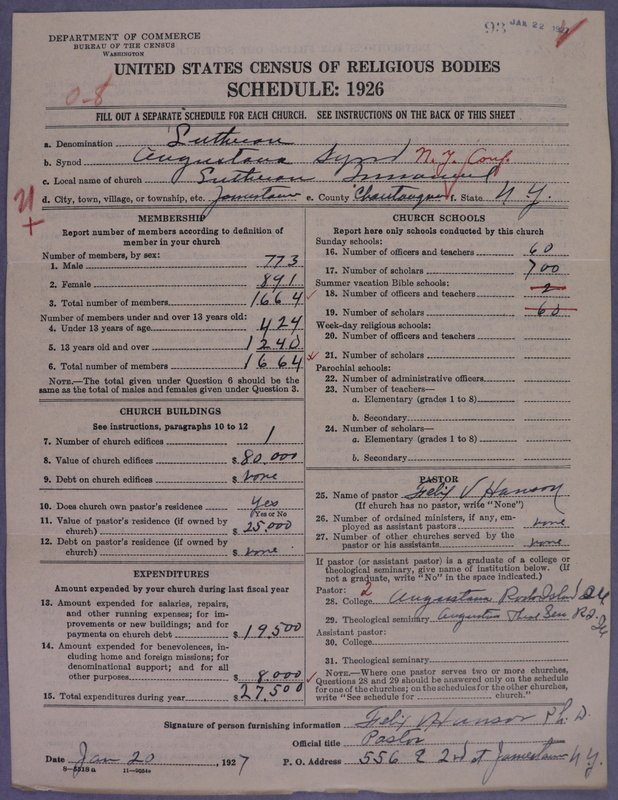 DEPARTMENT OF COMMERCE
BUREAU OF THE CENSUS
WASHINGTON
93 JAN 22 1927
UNITED STATES CENSUS OF RELIGIOUS BODIES
SCHEDULE: 1926
0-8
FILL OUT A SEPARATE SCHEDULE FOR EACH CHURCH. SEE INSTRUCTIONS ON THE BACK OF THIS SHEET
a. Denomination Lutheran
b. Synod Augustana Synod N.Y. Conf.
c. Local name of church Lutheran Immanuel
d. City, town, village, or township, etc. Jamestown e. County Chautauqua f. State N.Y.
MEMBERSHIP
Report number of members according to definition of
member in your church
Number of members, by sex:
1. Male 773
2. Female 891
3. Total number of members 1664
Number of members under and over 13 years old:
4. Under 13 years of age 424
5. 13 years old and over 1240
6. Total number of members 1664
NOTE.—The total given under Question 6 should be the
same as the total of males and females given under Question 3.
CHURCH BUILDINGS
See instructions, paragraphs 10 to 12
7. Number of church edifices 1
8. Value of church edifices $ 80,000
9. Debt on church edifices $ none
10. Does church own pastor's residence yes
Yes or No
11. Value of pastor's residence (if owned by
church) $ 25,000
12. Debt on pastor's residence (if owned by
church) $ none
EXPENDITURES
Amount expended by your church during last fiscal year
13. Amount expended for salaries, repairs,
and other running expenses; for im-
provements or new buildings; and for
payments on church debt $ 19500
14. Amount expended for benevolences, in-
cluding home and foreign missions; for
denominational support; and for all
other purposes $ 8,000
15. Total expenditures during year $ 27,500
CHURCH SCHOOLS
Report here only schools conducted by this church
Sunday schools:
16. Number of officers and teachers 60
17. Number of scholars 700
Summer vacation Bible schools:
18. Number of officers and teachers 2
19. Number of scholars 60
Week-day religious schools:
20. Number of officers and teachers
21. Number of scholars
Parochial schools:
22. Number of administrative officers
23. Number of teachers—
a. Elementary (grades 1 to 8)
b. Secondary
24. Number of scholars—
a. Elementary (grades 1 to 8)
b. Secondary
PASTOR
25. Name of pastor Felix V Hanson
(If church has no pastor, write "None")
26. Number of ordained ministers, if any, em-
ployed as assistant pastors none
27. Number of other churches served by the
pastor or his assistants none
If pastor (or assistant pastor) is a graduate of a college or
theological seminary, give name of institution below. (If
not a graduate, write "No" in the space indicated.)
Pastor: 2
28. College Augustana Rock Island Ill
29. Theological seminary Augustana Theol Sem R.I. Ill
Assistant pastor:
30. College
31. Theological seminary
NOTE.—Where one pastor serves two or more churches,
Questions 28 and 29 should be answered only on the schedule
for one of the churches; on the schedules for the other churches,
write "See schedule for church."
Signature of person furnishing information Felix V Hanson Ph. D.
Official title Pastor
Date Jan 20, 1927 P. O. Address 556 E 2nd st Jamestown N.Y.
8—5318a 11—9034